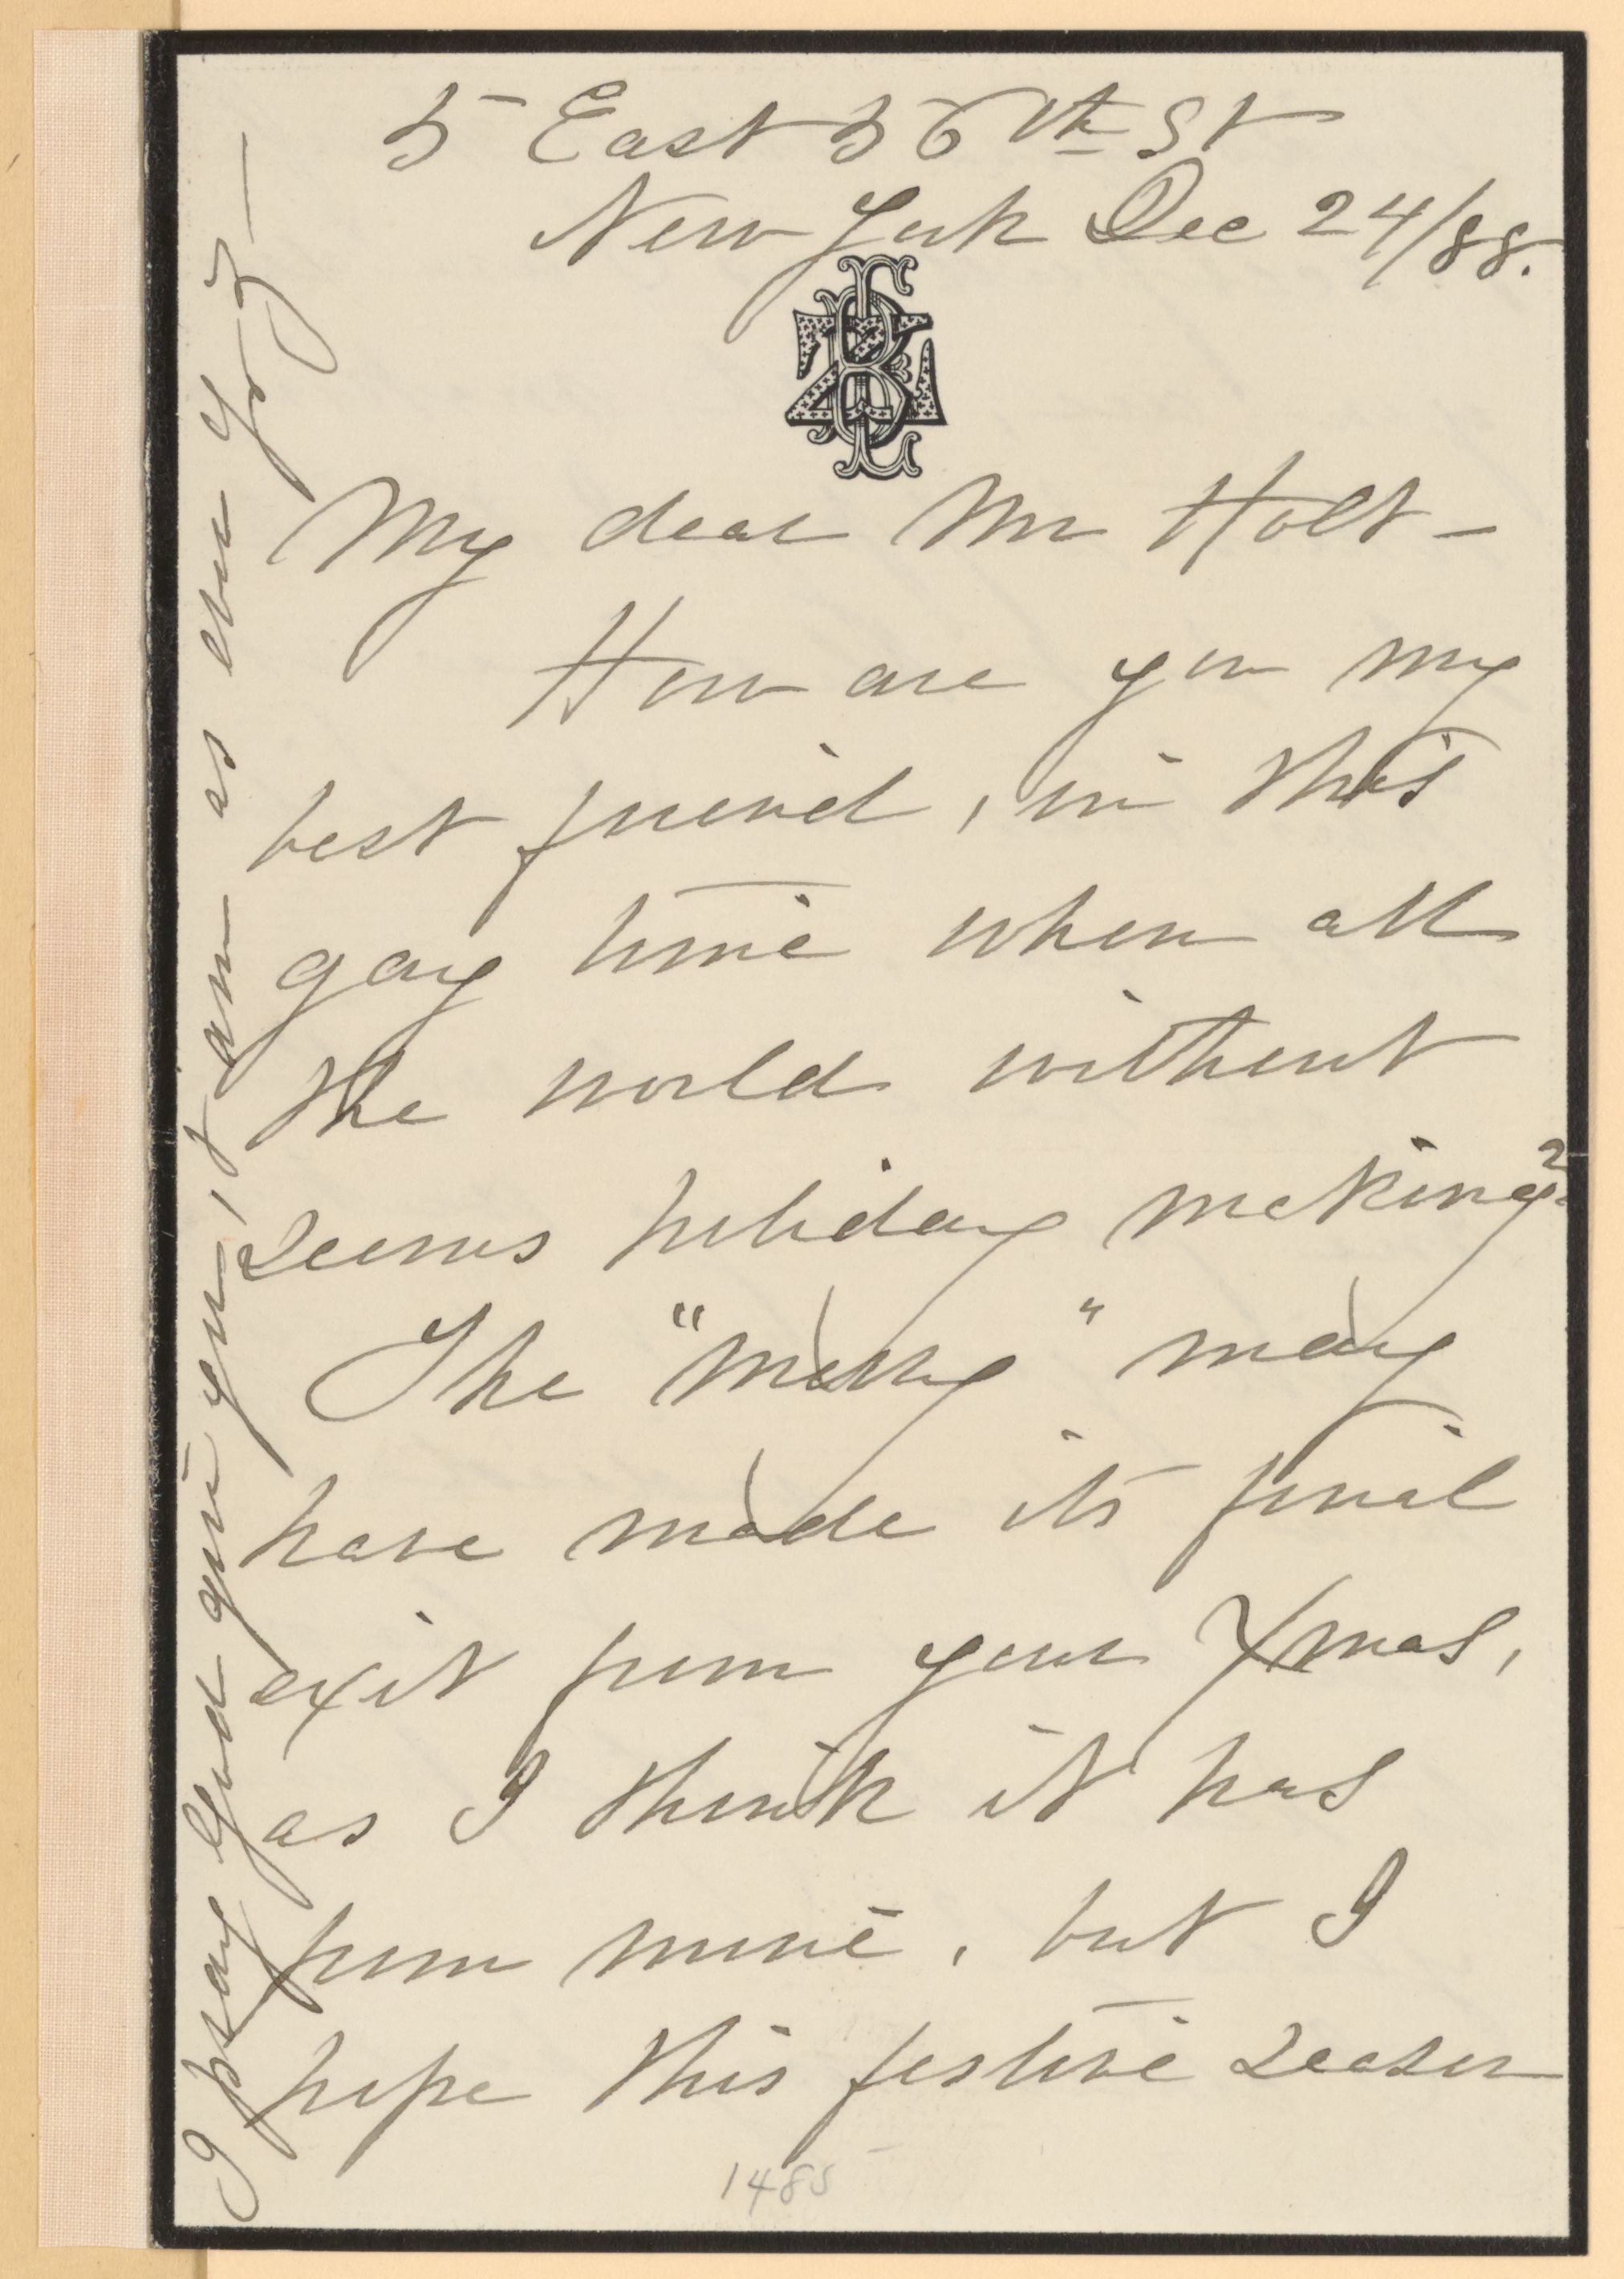 5 East 56th St
New York Dec 24/88.
My dear Mr Holt –
How are you my
best friend, in this
gay time when all
the world without
seems holiday making?
The "merry" may
have made its final
exit from your Xmas,
as I think it has
from mine, but I
hope this festive season
1485
I pray God give you, I am as ever Yrs